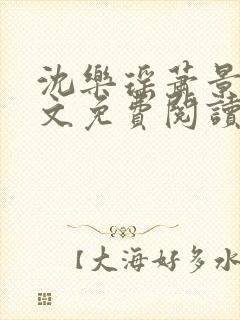 沈樂瑤蕭景
文免費閱讀
【大海好多水